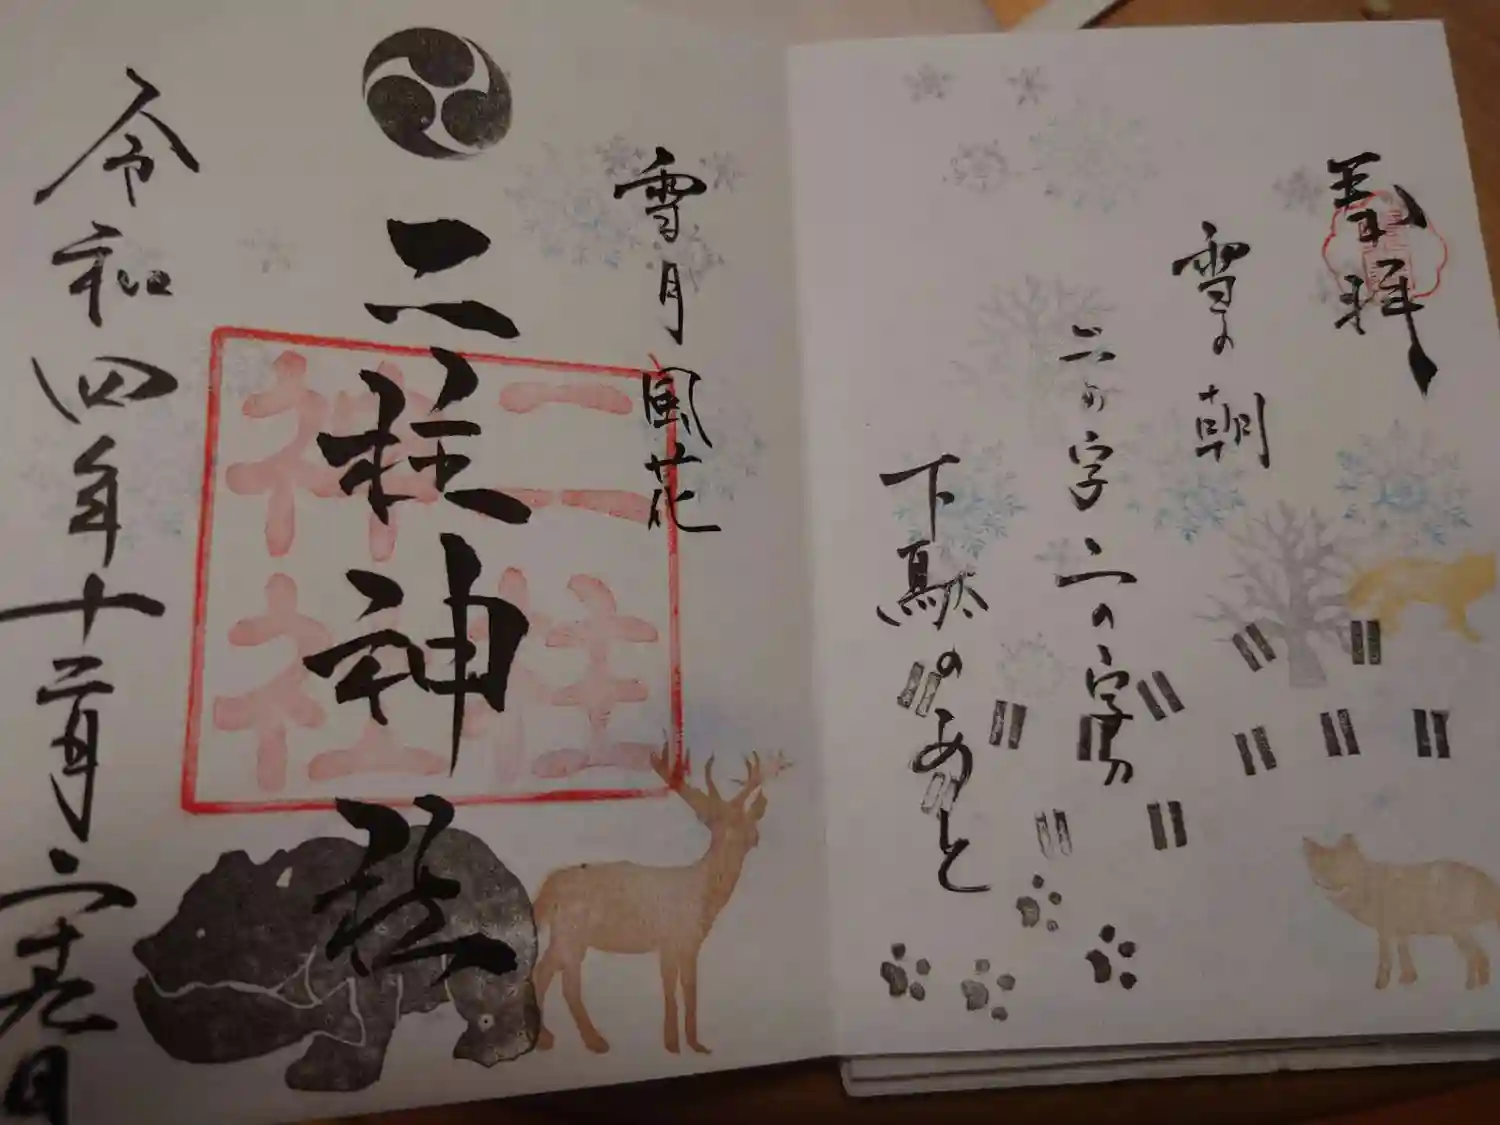 奉拝
雪の朝
二の字二の字の
下駄のあと
雪月風花
二柱神社
二柱
神社
令和四年十二月二十九日